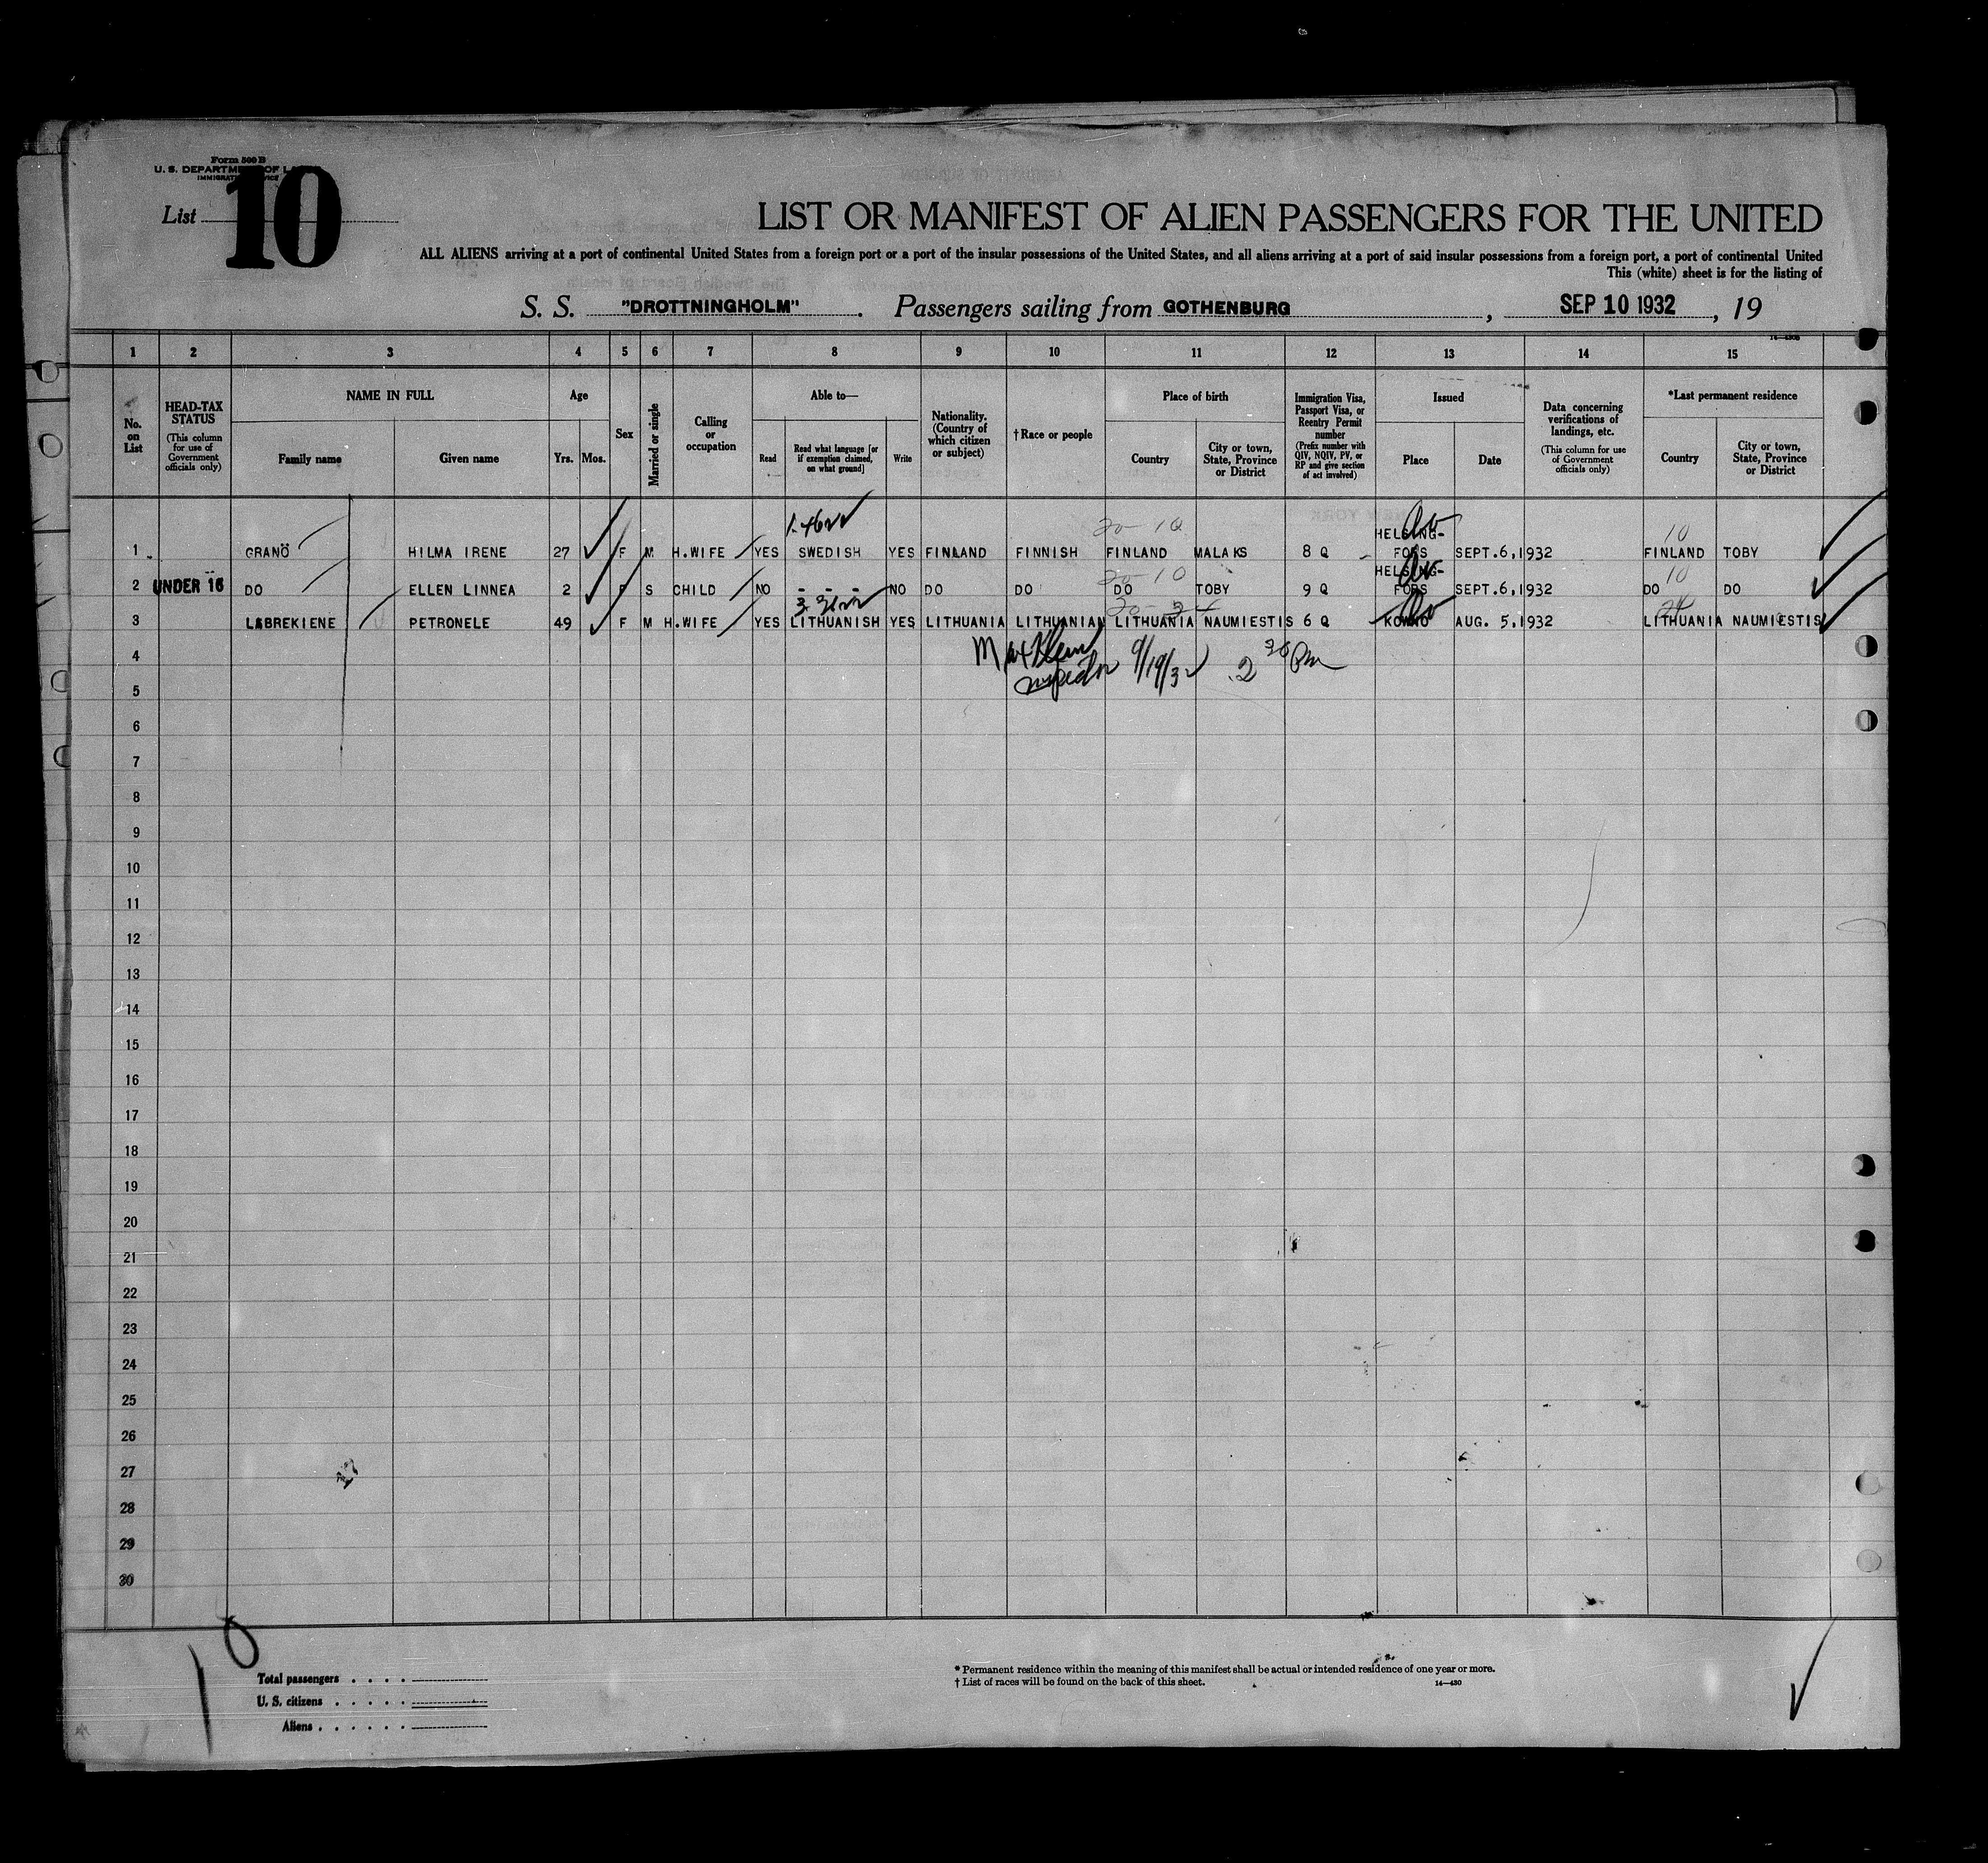 Form 500 B
U. S. DEPARTMENT OF
IMMIGRATION SERVICE
List 10
LIST OR MANIFEST OF ALIEN PASSENGERS FOR THE UNITED
ALL ALIENS arriving at a port of continental United States from a foreign port or a port of the insular possessions of the United States, and all aliens arriving at a port of said insular possessions from a foreign port, a port of continental United
This (white) sheet is for the listing of
S. S. "DROTTNINGHOLM". Passengers sailing from GOTHENBURG, SEP 10 1932, 19
1 2 3 4 5 6 7 8 9 10 11 12 13 14 15
No. on List
HEAD-TAX STATUS
(This column for use of Government officials only)
NAME IN FULL
Family name
Given name
Age
Yrs.
Mos.
Sex
Married or single
Calling or occupation
Able to—
Read
Read what language [or if exemption claimed, on what ground]
Write
Nationality. (Country of which citizen or subject)
†Race or people
Place of birth
Country
City or town, State, Province or District
Immigration Visa, Passport Visa, or Reentry Permit number
(Prefix number with QIV, NQIV, PV, or RP and give section of act involved)
Issued
Place
Date
Data concerning verifications of landings, etc.
(This column for use of Government officials only)
*Last permanent residence
Country
City or town, State, Province or District
20-10 10
1 GRANÖ HILMA IRENE 27 F M H.WIFE YES SWEDISH YES FINLAND FINNISH FINLAND MALAKS 8 Q HELSINGFORS SEPT.6,1932 FINLAND TOBY
20-10 10
2 UNDER 16 DO ELLEN LINNEA 2 F S CHILD NO - - - NO DO DO DO TOBY 9 Q HELSINGFORS SEPT.6,1932 DO DO
3 LABREKIENE PETRONELE 49 F M H.WIFE YES LITHUANISH YES LITHUANIA LITHUANIAN LITHUANIA NAUMIESTIS 6 Q KOWNO AUG. 5,1932 LITHUANIA NAUMIESTIS
4 Max Klein
5 Inspector 9/19/32 2 30 Pm
6
7
8
9
10
11
12
13
14
15
16
17
18
19
20
21
22
23
24
25
26
27
28
29
30
10
Total passengers . . . .
U. S. citizens . . . . .
Aliens . . . . . .
* Permanent residence within the meaning of this manifest shall be actual or intended residence of one year or more.
† List of races will be found on the back of this sheet. 14—430